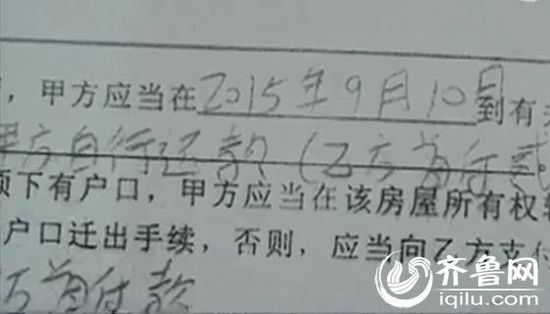 ，甲方应当在2015年9月10日到有关
甲方自行还款（乙方首付款
项下有户口，甲方应当在该房屋所有权转
户口迁出手续，否则，应当向乙方支付
方首付款
齐鲁网
iqilu.com